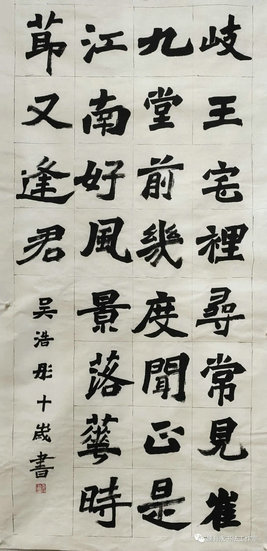 岐王宅裡尋常見崔
九堂前幾度聞正是
江南好風景落華時
節又逢君
吴浩彤十歲書